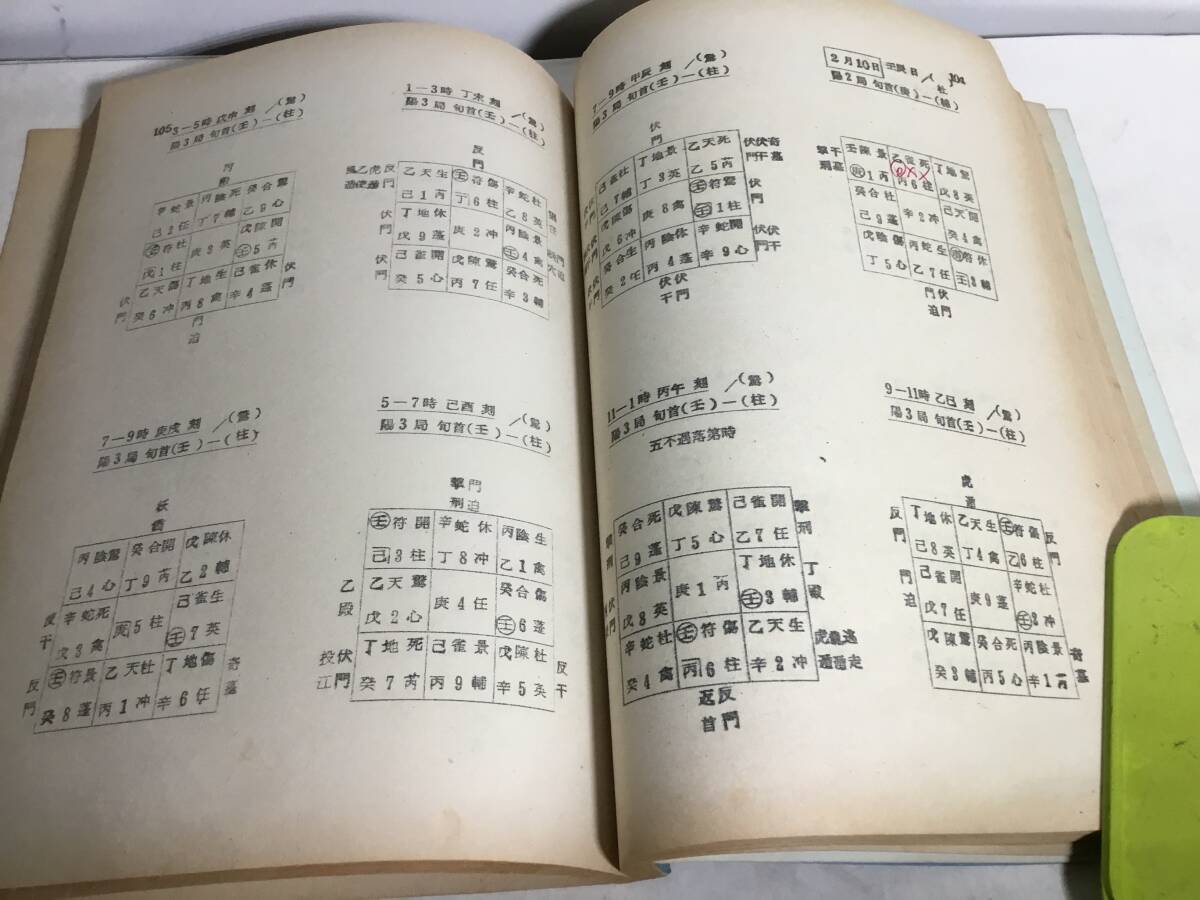 2月10日 壬辰日
陽2局 旬首(庚)一(輔)
壬陳景 乙雀死 丁地驚
丙6柱 戊8英
癸合杜 己天開
己9蓬 辛2冲 癸4禽
戊陰傷 丙蛇生 符休
丁5心 乙7任 壬3輔
7—9時 甲辰刻 /(驚)
陽3局 旬首(壬)一(柱)
己雀杜 丁地景 乙天死
己7輔 丁3英 乙5芮
戊陳傷 壬符驚
戊6冲 庚8禽 壬1柱
癸合生 丙陰休 辛蛇開
癸2任 丙4蓬 辛9心
9—11時 乙巳刻 /(驚)
陽3局 旬首(壬)一(柱)
丁地休 乙天生 壬符傷
己8英 丁4禽 乙6柱
己雀開 辛蛇杜
戊7任 庚9蓬 壬2冲
戊陳驚 癸合死 丙陰景
癸3輔 丙5心 辛1芮
11—1時 丙午刻 /(驚)
陽3局 旬首(壬)一(柱)
五不遇落第時
癸合死 戊陳驚 己雀開
己9蓬 丁5心 乙7任
丙陰景 丁地休
戊8英 庚1芮 壬3輔
辛蛇杜 壬符傷 乙天生
癸4禽 丙6柱 辛2冲
返首 反門
1—3時 丁未刻 /(驚)
陽3局 旬首(壬)一(柱)
反門
乙天生 壬符傷 辛蛇杜
己1芮 丁6柱 乙8英
丁地休 丙陰景
戊9蓬 庚2冲 壬4禽
己雀開 戊陳驚 癸合死
癸5心 丙7任 辛3輔
105 3—5時 戊申刻 /(驚)
陽3局 旬首(壬)一(柱)
辛蛇景 丙陰死 癸合驚
己2任 丁7輔 乙9心
壬符杜 戊陳開
戊1柱 庚3英 壬5芮
乙天傷 丁地生 己雀休
癸6冲 丙8禽 辛4蓬
門迫
5—7時 己酉刻 /(驚)
陽3局 旬首(壬)一(柱)
擊刑 門迫
壬符開 辛蛇休 丙陰生
己3柱 丁8冲 乙1禽
乙天驚 癸合傷
戊2心 庚4任 壬6蓬
丁地死 己雀景 戊陳杜
癸7芮 丙9輔 辛5英
投江 伏門 反干
7—9時 庚戌刻 /(驚)
陽3局 旬首(壬)一(柱)
丙陰驚 癸合開 戊陳休
己4心 丁9芮 乙2輔
辛蛇死 己雀生
戊3禽 庚5柱 壬7英
壬符景 乙天杜 丁地傷
癸8蓬 丙1冲 辛6任
反門 反干 奇墓